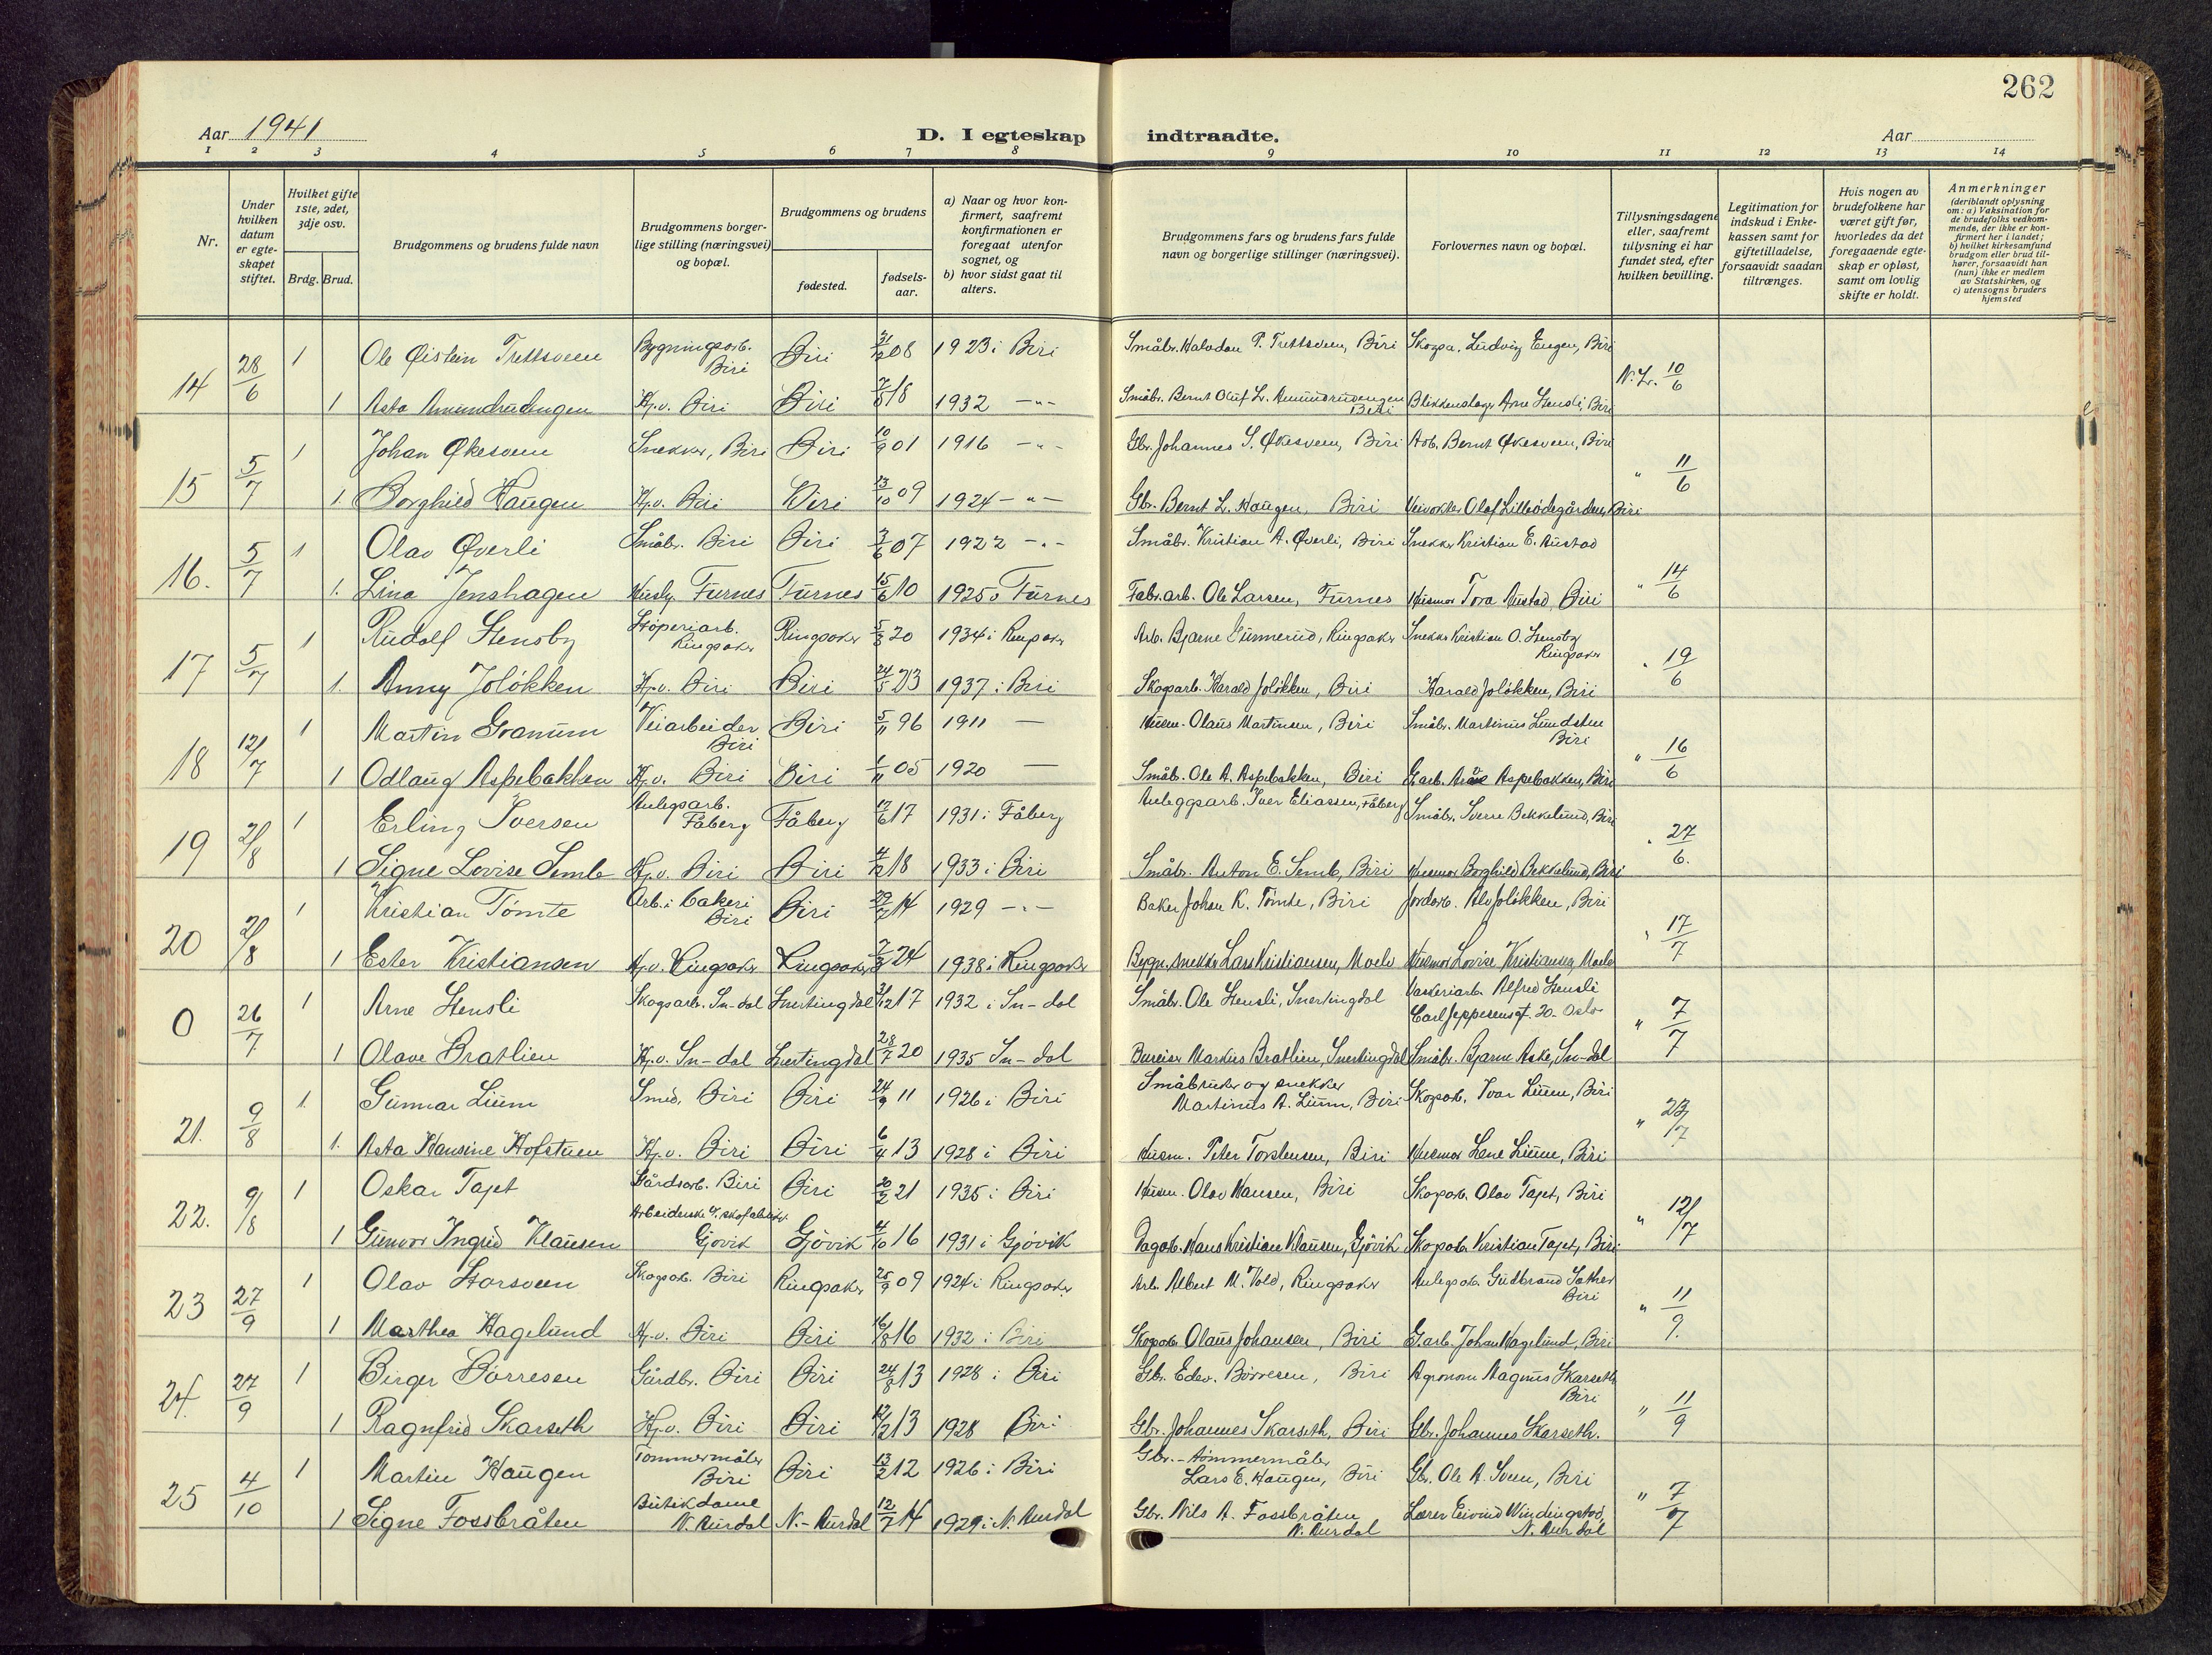 262
Aar 1941 D. I egteskap indtraadte. Aar
1 2 3 4 5 6 7 8 9 10 11 12 13 14
Nr.
Under hvilken datum er egte-skapet stiftet.
Hvilket gifte 1ste, 2det, 3dje osv.
Brdg. Brud.
Brudgommens og brudens fulde navn
Brudgommens borger-lige stilling (næringsvei) og bopæl.
Brudgommens og brudens
fødested. fødsels-aar.
a) Naar og hvor kon-firmert, saafremt konfirmationen er foregaat utenfor sognet, og
b) hvor sidst gaat til alters.
Brudgommens fars og brudens fars fulde navn og borgerlige stillinger (næringsvei).
Forlovernes navn og bopæl.
Tillysningsdagene eller, saafremt tillysning ei har fundet sted, efter hvilken bevilling.
Legitimation for indskud i Enke-kassen samt for giftetilladelse, forsaavidt saadan tiltrænges.
Hvis nogen av brudefolkene har været gift før, hvorledes da det foregaaende egte-skap er opløst, samt om lovlig skifte er holdt.
Anmerkninger (deriblandt oplysning om: a) Vaksination for de brudefolks vedkom-mende, der ikke er kon-firmert her i landet; b) hvilket kirkesamfund brudgom eller brud til-hører, forsaavidt han (hun) ikke er medlem av Statskirken, og c) utensogns bruders hjemsted
14 28/6 1 Ole Øistein Trettsveen Bygningsarb. Biri Biri 08 1923 i Biri Småbr. Halvdan P. Trettsveen, Biri Skogsa. Ludvig Engen, Biri
1 Asta Amundrudengen Hj.v. Biri Biri 18 1932 -"- Småbr. Bernt Oluf L. Amundrudengen Biri Blikkenslager Arne Stensli, Biri N.L. 10/6
15 5/7 1 Johan Økesveen Snekker, Biri Biri 10/9 01 1916 -"- Gbr. Johannes S. Økesveen, Biri Arb. Bernt Økesveen, Biri
1. Borghild Haugen Hj.v. Biri Biri 23/10 09 1924 -"- Gbr. Bernt L. Haugen, Biri Veivokter Olaf Lilleødegården, Biri " 11/6
16. 5/7 1 Olav Øverli Småbr. Biri Biri 07 1922 -"- Småbr. Kristian A. Øverli, Biri Snekker Kristian E. Austad
1. Lina Jenshagen Furnes Furnes 15/6 10 1925 Furnes Fabr.arb. Ole Larsen, Furnes Husmor Tora Austad, Biri " 14/6
17 5/7 1 Rudolf Stensby Støperiarb. Ringsaker Ringsaker 20 1934 i Ringsaker Arb. Bjarne Gunnerud, Ringsaker Snekker Kristian O. Stensby Ringsaker
1. Anny Joløkken Hj.v. Biri Biri 24/5 23 1937 i Biri Skogsarb. Harald Joløkken, Biri Harald Joløkken, Biri " 19/6
18 12/7 1 Martin Granum Veiarbeider Biri Biri 5/11 96 1911 — Husm. Olaus Martinsen, Biri Småbr. Martinus Lundsten Biri
1 Odlaug Aspebakken Hj.v. Biri Biri 05 1920 — Småb. Ole A. Aspebakken, Biri G.arb. Aspebakken, Biri " 16/6
19 2/8 1 Erling Iversen Anlegsarb. Fåberg Fåberg 17 1931 i Fåberg Anleggsarb. Iver Eliassen, Fåberg Småbr. Sverre Bekkelund, Biri
1 Signe Lovise Semb Hj.v. Biri Biri 18 1933 i Biri Småbr. Anton E. Semb, Biri Husmor Borghild Bekkelund, Biri " 27/6.
20 2/8 1 Kristian Tømte Arb. i bakeri Biri Biri 14 1929 -"- Baker Johan K. Tømte, Biri Jordarb. Alv Joløkken, Biri
1 Ester Kristiansen Hj.v. Ringsaker Ringsaker 24 1938 i Ringsaker Bygn.snekker Lars Kristiansen, Moelv Husmor Lovise Kristiansen, Moelv " 17/7
0 26/7 1 Arne Stensli Skogsarb. Sn-dal Snertingdal 17 1932 i Sn-dal Småbr. Ole Stensli, Snertingdal Vaskeriarb. Alfred Stensli Carl Jeppesens gt. 20. Oslo
1 Olave Bratlien Hj.v. Sn-dal Snertingdal 28/7 20 1935 Sn-dal Bureiser Markus Bratlien, Snertingdal Småbr. Bjarne Aske, Sn-dal " 7/7
21. 9/8 1. Gunnar Lium Smed, Biri Biri 24/9 11 1926 i Biri Småbruker og snekker Martinus A. Lium, Biri Skogsarb. Ivar Lium, Biri
1. Asta Hansine Hofstuen Hj.v. Biri Biri 13 1928 i Biri Husm. Peter Torstensen, Biri Husmor Lene Lium, Biri " 23/7
22. 9/8 1 Oskar Tajet Gårdsarb. Biri Biri 21 1935 i Biri Husm. Olav Hansen, Biri Skogsarb. Olav Tajet, Biri
1 Gunvor Ingrid Klausen Arbeiderske v. skofabrikk Gjøvik Gjøvik 4/10 16 1931 i Gjøvik Dagarb. Hans Kristian Klausen, Gjøvik Skogsarb. Kristian Tajet, Biri " 12/7
23 27/9 1 Olav Storsveen Skogsarb. Biri Ringsaker 25/9 09 1924 i Ringsaker Arb. Albert M. Vold, Ringsaker Anlegsarb. Gudbrand Sæther Biri
1 Marthea Hagelund Hj.v. Biri Biri 16/8 16 1932 i Biri Skogsarb. Olaus Johansen, Biri G.arb. Johan Hagelund, Biri " 11/9.
24. 27/9 1 Birger Børresen Gårdbr. Biri Biri 24/8 13 1928 i Biri Gbr. Edev. Børresen, Biri Agronom Magnus Skarseth Biri
1 Ragnfrid Skarseth Hj.v. Biri Biri 12/2 13 1928 Biri Gbr. Johannes Skarseth, Biri Gbr. Johannes Skarseth. " 11/9
25 4/10 1 Martin Haugen Tømmermåler Biri Biri 13/2 12 1926 i Biri Gbr.-tømmermåler Lars E. Haugen, Biri Gbr. Ole A. Sveen, Biri
1 Signe Fossbråten Butikdame N. Aurdal N.-Aurdal 12/7 14 1929 i N. Aurdal Gbr. Nils A. Fossbråten N. Aurdal Lærer Eivind Windingstad, N. Aurdal " 7/7